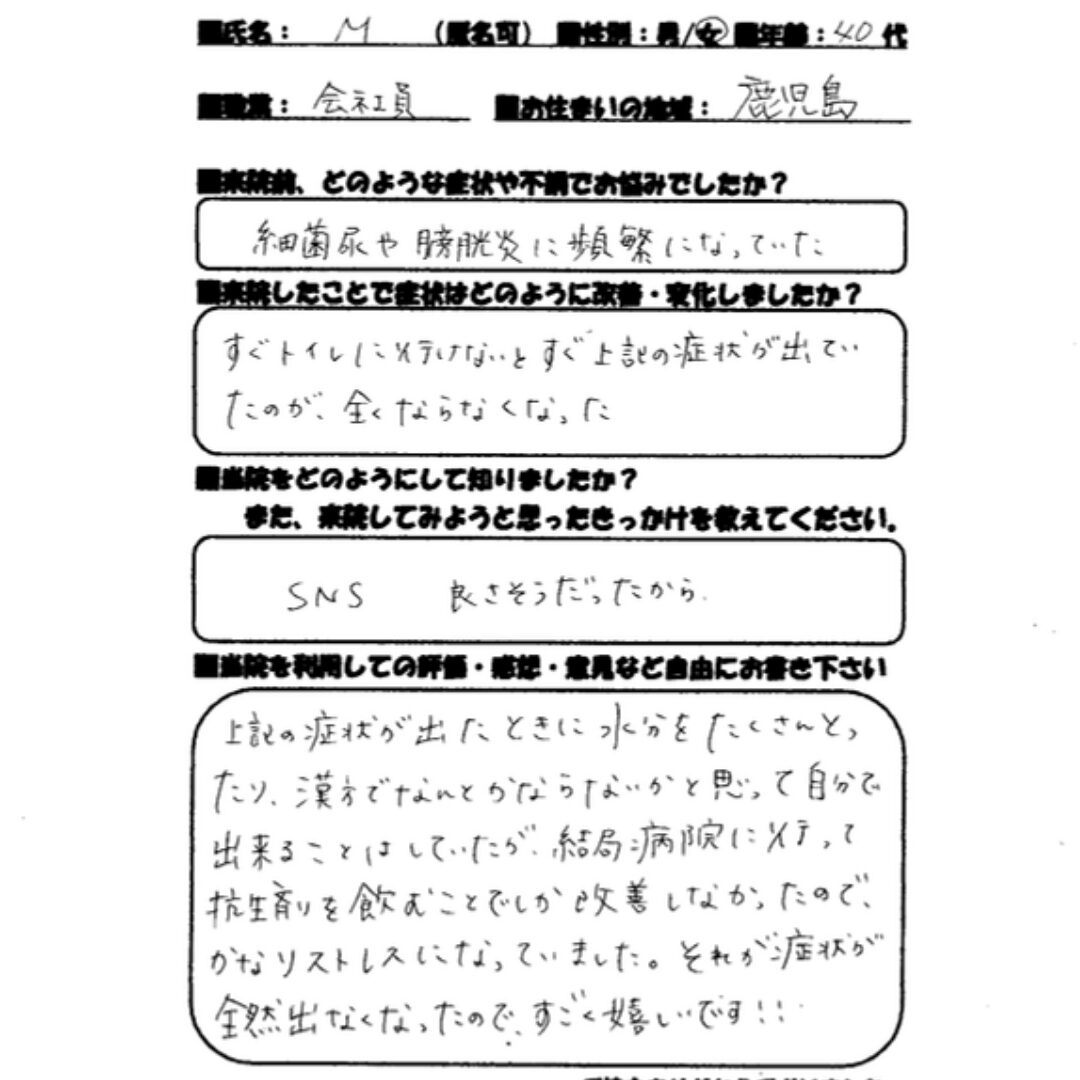 ■氏名： M （匿名可） ■性別：男/女 ■年齢：40代
■職業：会社員 ■お住まいの地域：鹿児島
■来院前、どのような症状や不調でお悩みでしたか？
細菌尿や膀胱炎に頻繁になっていた
■来院したことで症状はどのように改善・変化しましたか？
すぐトイレに行けないとすぐ上記の症状が出てい
たのが、全くならなくなった
■当院をどのようにして知りましたか？
また、来院してみようと思ったきっかけを教えてください。
SNS 良さそうだったから.
■当院を利用しての評価・感想・意見など自由にお書き下さい
上記の症状が出たときに水分をたくさんとっ
たり、漢方でなんとかならないかと思って自分で
出来ることはしていたが、結局病院に行って
抗生剤を飲むことでしか改善しなかったので、
かなりストレスになっていました。それが症状が
全然出なくなったので、すごく嬉しいです!!